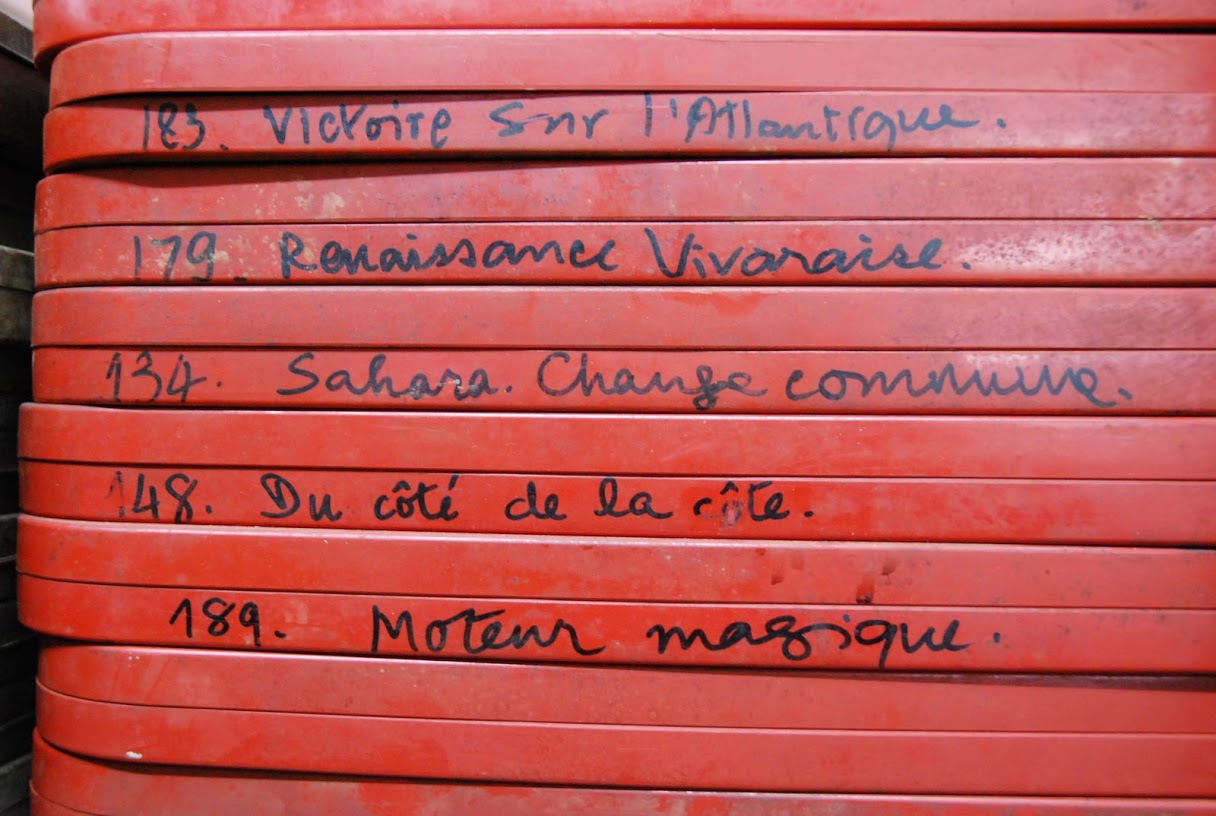 183. Victoire Sur l'Atlantique.
179. Renaissance Vivaraise.
134. Sahara. Change commune.
148. Du côté de la côte.
189. Moteur magique.